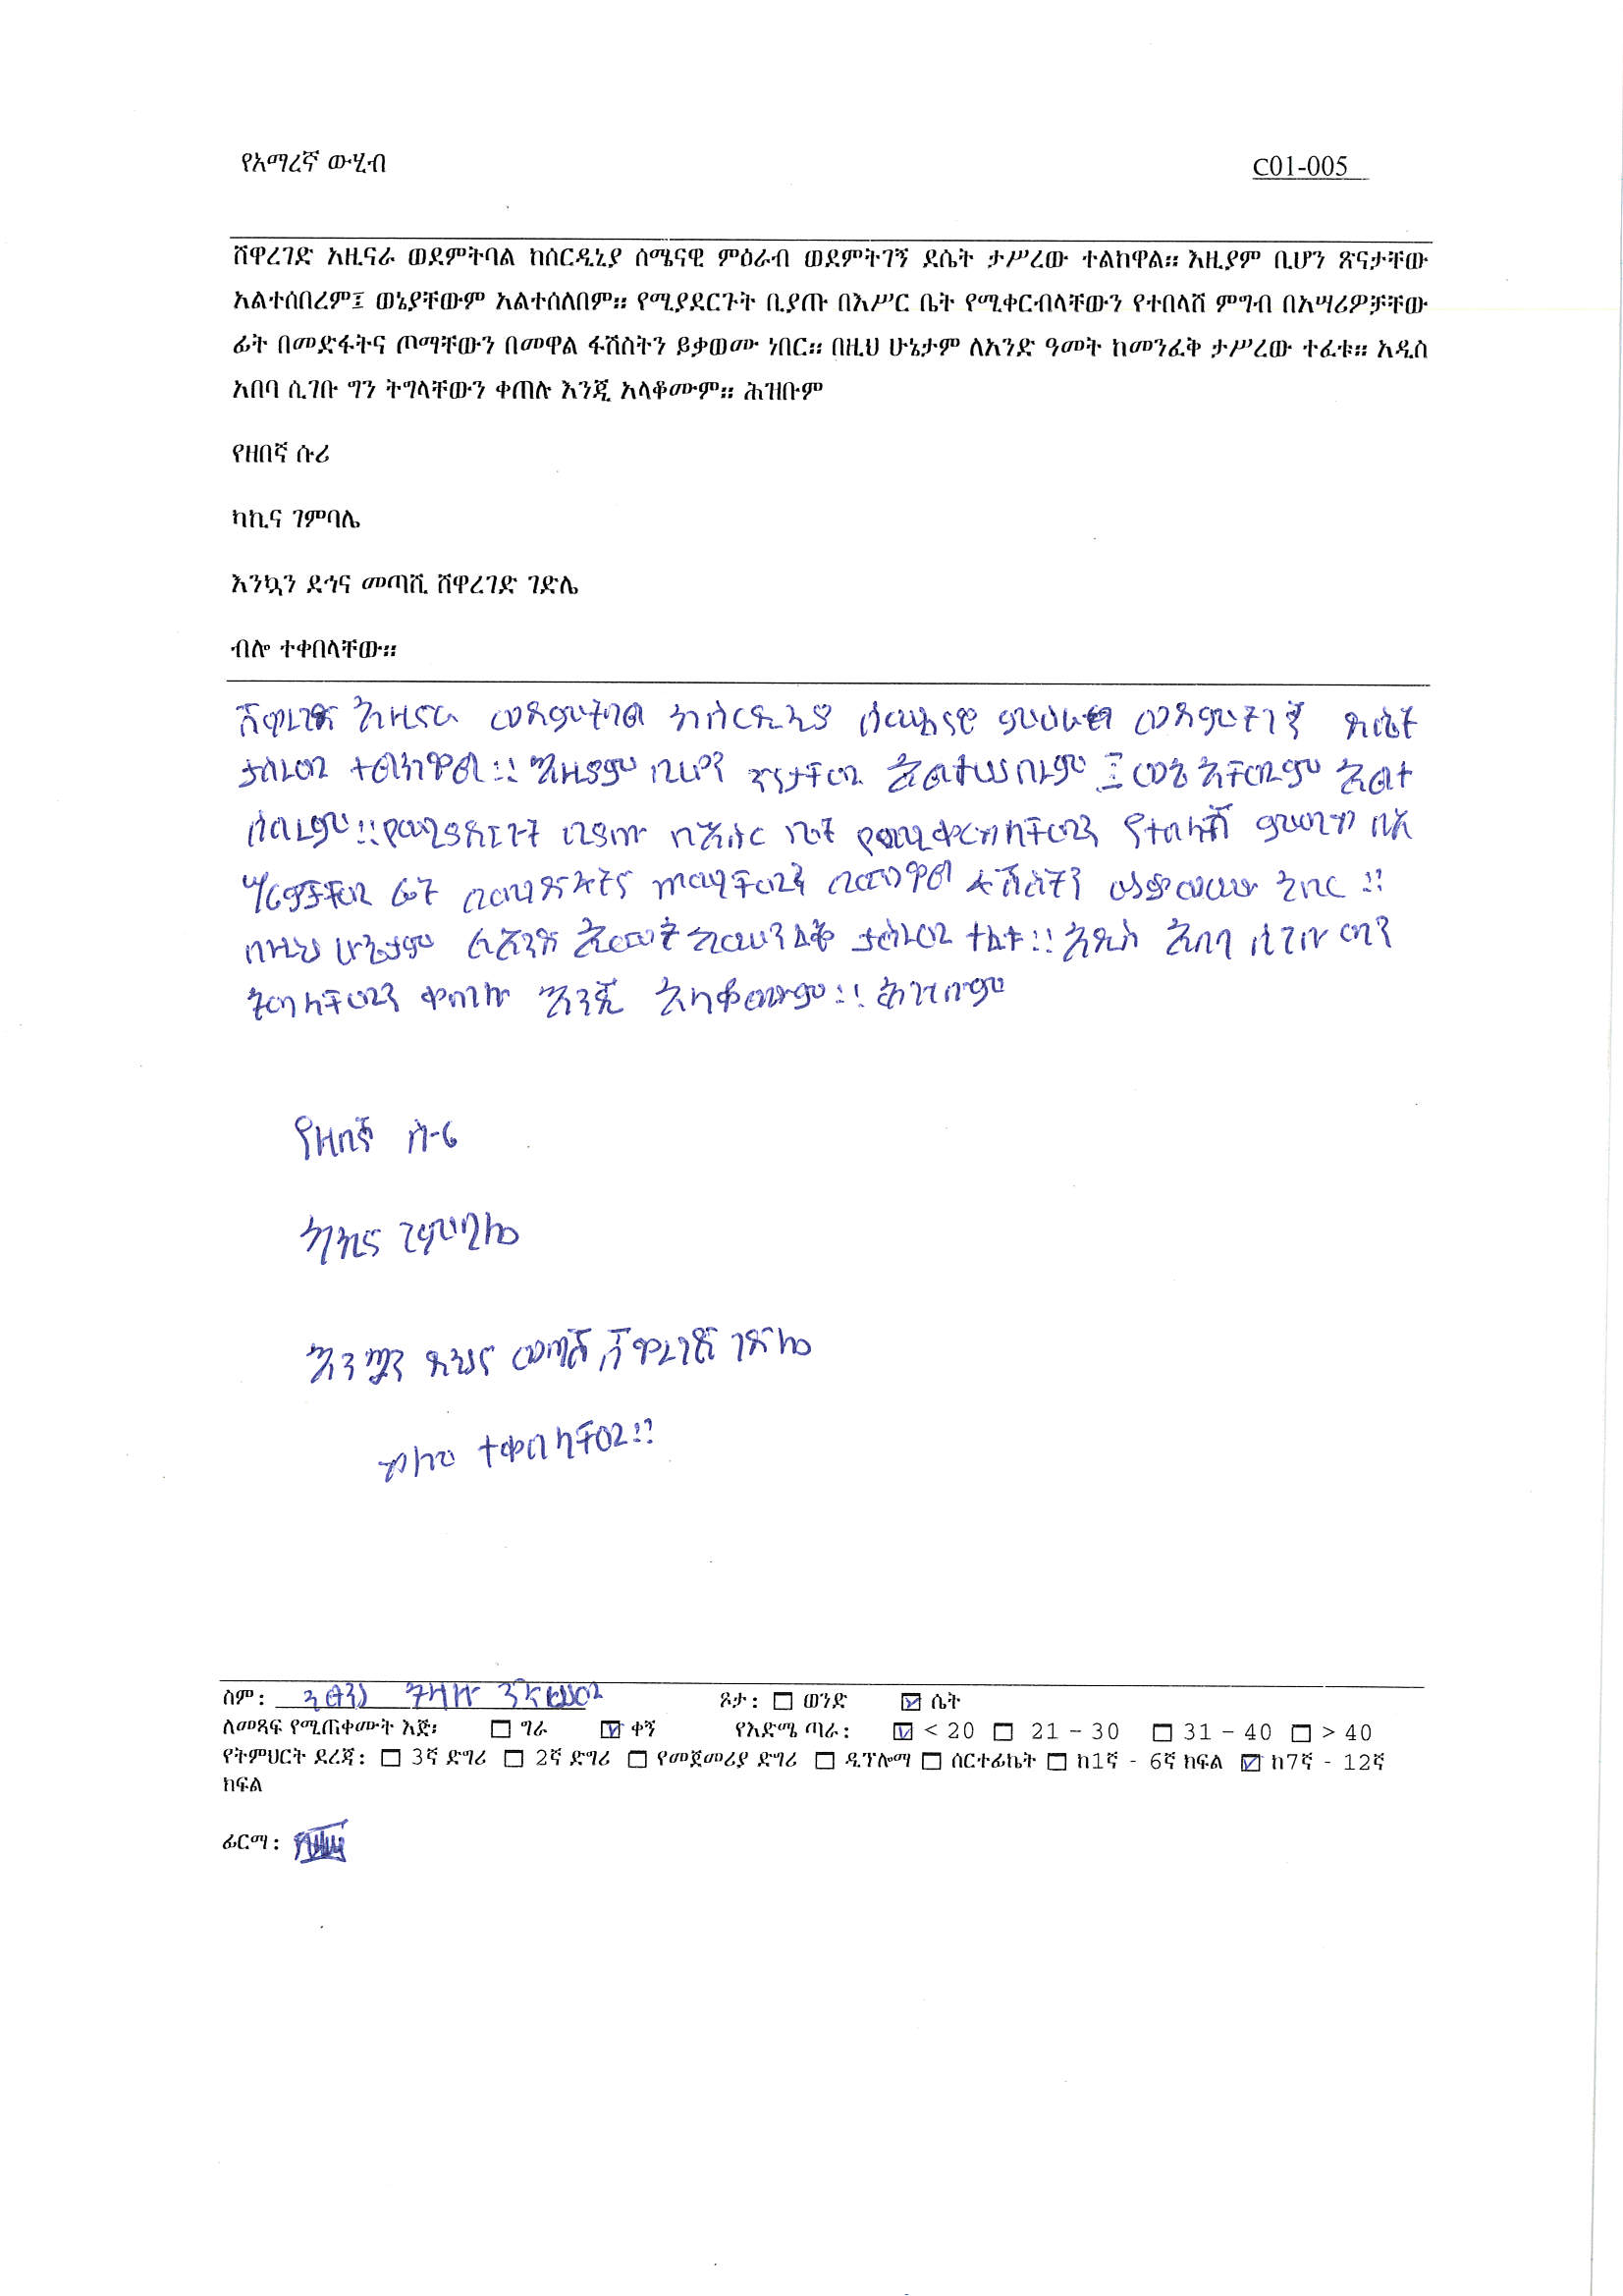 የአማረኛ ውሂብ C01-005
ሸዋረገድ አዚናራ ወደምትባል ከሰርዲኒያ ሰሜናዊ ምዕራብ ወደምትገኝ ደሴት ታሥረው ተልከዋል። እዚያም ቢሆን ጽናታቸው
አልተሰበረም፤ ወኔያቸውም አልተሰለበም። የሚያደርጉት ቢያጡ በእሥር ቤት የሚቀርብላቸውን የተበላሸ ምግብ በአሣሪዎቻቸው
ፊት በመድፋትና ጦማቸውን በመዋል ፋሽስትን ይቃወሙ ነበር። በዚህ ሁኔታም ለአንድ ዓመት ከመንፈቅ ታሥረው ተፈቱ። አዲስ
አበባ ሲገቡ ግን ትግላቸውን ቀጠሉ እንጂ አላቆሙም። ሕዝቡም
የዘበኛ ሱሪ
ካኪና ገምባሌ
እንኳን ደኅና መጣሺ ሸዋረገድ ገድሌ
ብሎ ተቀበላቸው።
ሸዋረገድ አዚናራ ወደምትባል ከሰርዲኒያ ሰሜናዊ ምዕራብ ወደምትገኝ ደሴት
ታስረው ተልከዋል። እዚያም ቢሆን ጽናታቸው አልተሰበረም ፤ ወኔ አቸውም አልተ
ሰበረም። የሚያደርጉት ቢያጡ በእስር ቤት የሚቀርብላቸውን የተበላሸ ምግብ በአ
ሣሪዎቻቸው ፊት በመድፋትና ጦማቸውን በመዋል ፋሽስትን ይቃወሙ ነበር ።
በዚህ ሁኔታም ለአንድ አመት ከመንፈቅ ታስረው ተፈቱ። አዲስ አበባ ሲገቡ ግን
ትግላቸውን ቀጠሉ እንጂ አላቆሙም። ሕዝቡም
የዘበኛ ሱሪ
ካኪና ገምባሌ
እንኳን ደኅና መጣሽ ሸዋረገድ ገድሌ
ብሎ ተቀበላቸው።
ስም: ጾታ: ወንድ ሴት
ለመጻፍ የሚጠቀሙት እጅ፡ ግራ ቀኝ የእድሜ ጣራ: < 20 21 - 30 31 - 40 > 40
የትምህርት ደረጃ: 3ኛ ድግሪ 2ኛ ድግሪ የመጀመሪያ ድግሪ ዲፕሎማ ሰርተፊኬት ከ1ኛ - 6ኛ ክፍል ከ7ኛ - 12ኛ
ክፍል
ፊርማ: